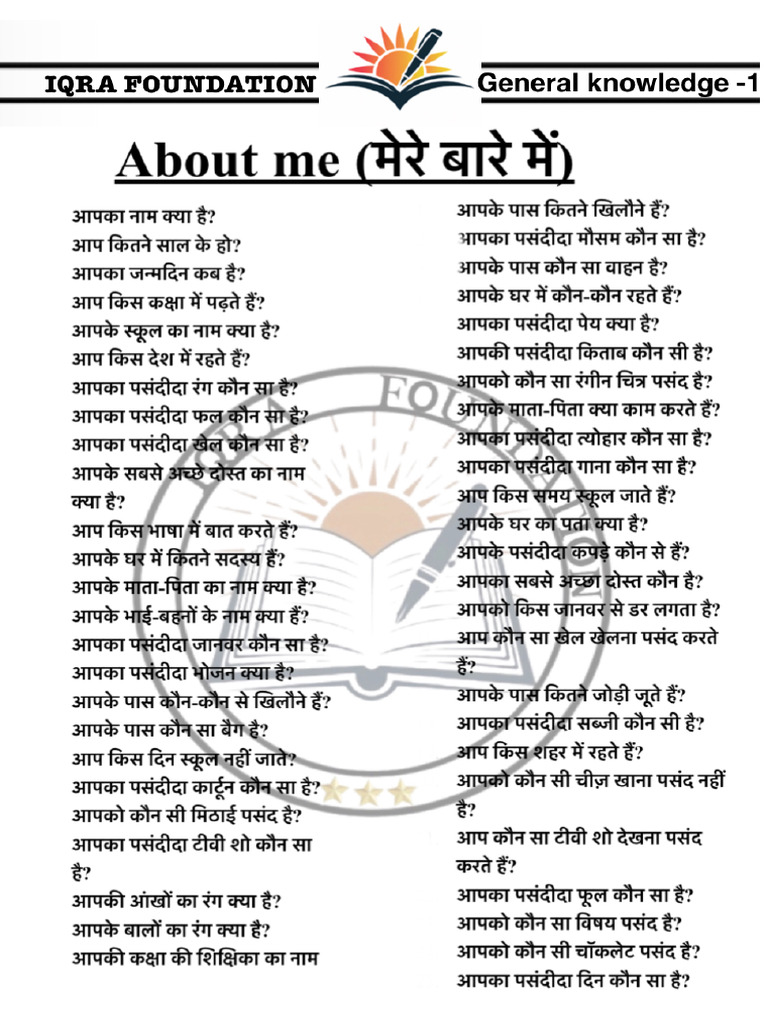 IQRA FOUNDATION
General knowledge -1
About me (मेरे बारे में)
आपका नाम क्या है?
आप कितने साल के हो?
आपका जन्मदिन कब है?
आप किस कक्षा में पढ़ते हैं?
आपके स्कूल का नाम क्या है?
आप किस देश में रहते हैं?
आपका पसंदीदा रंग कौन सा है?
आपका पसंदीदा फल कौन सा है?
आपका पसंदीदा खेल कौन सा है?
आपके सबसे अच्छे दोस्त का नाम
क्या है?
आप किस भाषा में बात करते हैं?
आपके घर में कितने सदस्य हैं?
आपके माता-पिता का नाम क्या है?
आपके भाई-बहनों के नाम क्या हैं?
आपका पसंदीदा जानवर कौन सा है?
आपका पसंदीदा भोजन क्या है?
आपके पास कौन-कौन से खिलौने हैं?
आपके पास कौन सा बैग है?
आप किस दिन स्कूल नहीं जाते?
आपका पसंदीदा कार्टून कौन सा है?
आपको कौन सी मिठाई पसंद है?
आपका पसंदीदा टीवी शो कौन सा
है?
आपकी आंखों का रंग क्या है?
आपके बालों का रंग क्या है?
आपकी कक्षा की शिक्षिका का नाम
आपके पास कितने खिलौने हैं?
आपका पसंदीदा मौसम कौन सा है?
आपके पास कौन सा वाहन है?
आपके घर में कौन-कौन रहते हैं?
आपका पसंदीदा पेय क्या है?
आपकी पसंदीदा किताब कौन सी है?
आपको कौन सा रंगीन चित्र पसंद है?
आपके माता-पिता क्या काम करते हैं?
आपका पसंदीदा त्योहार कौन सा है?
आपका पसंदीदा गाना कौन सा है?
आप किस समय स्कूल जाते हैं?
आपके घर का पता क्या है?
आपके पसंदीदा कपड़े कौन से हैं?
आपका सबसे अच्छा दोस्त कौन है?
आपको किस जानवर से डर लगता है?
आप कौन सा खेल खेलना पसंद करते
हैं?
आपके पास कितने जोड़ी जूते हैं?
आपका पसंदीदा सब्जी कौन सी है?
आप किस शहर में रहते हैं?
आपको कौन सी चीज़ खाना पसंद नहीं
है?
आप कौन सा टीवी शो देखना पसंद
करते हैं?
आपका पसंदीदा फूल कौन सा है?
आपको कौन सा विषय पसंद है?
आपको कौन सी चॉकलेट पसंद है?
आपका पसंदीदा दिन कौन सा है?
IQRA FOUNDATION